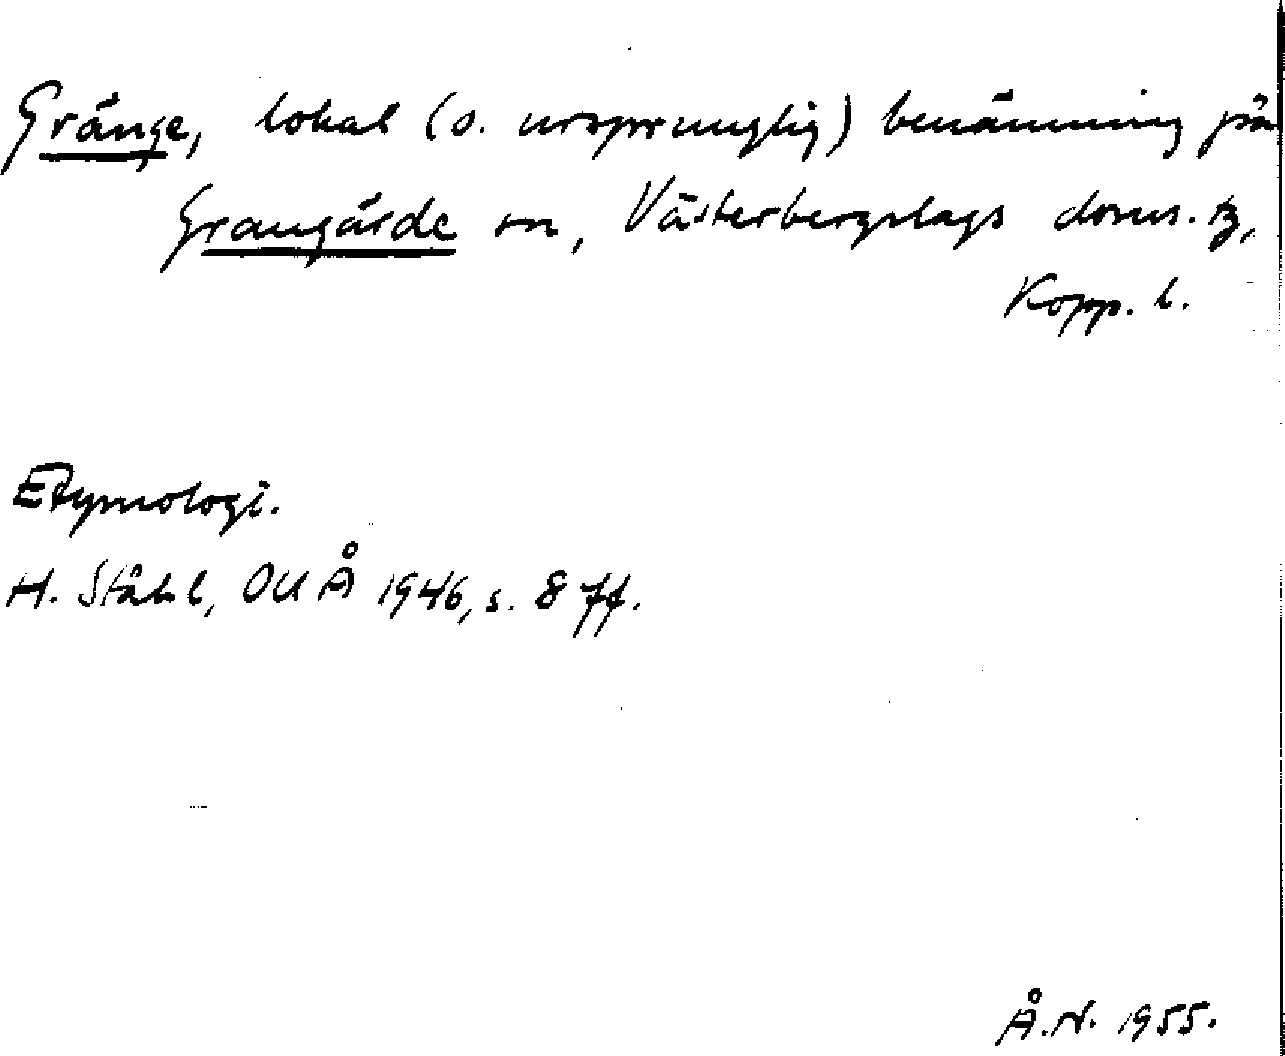 Gränge, lokal (o. ursprunglig) benämning på
Grangärde sn, Västerbergslags doms. tg,
Kopp. l.
Etymologi.
H. Ståhl, OUÅ 1946, s. 8 ff.
Å.N. 1955.